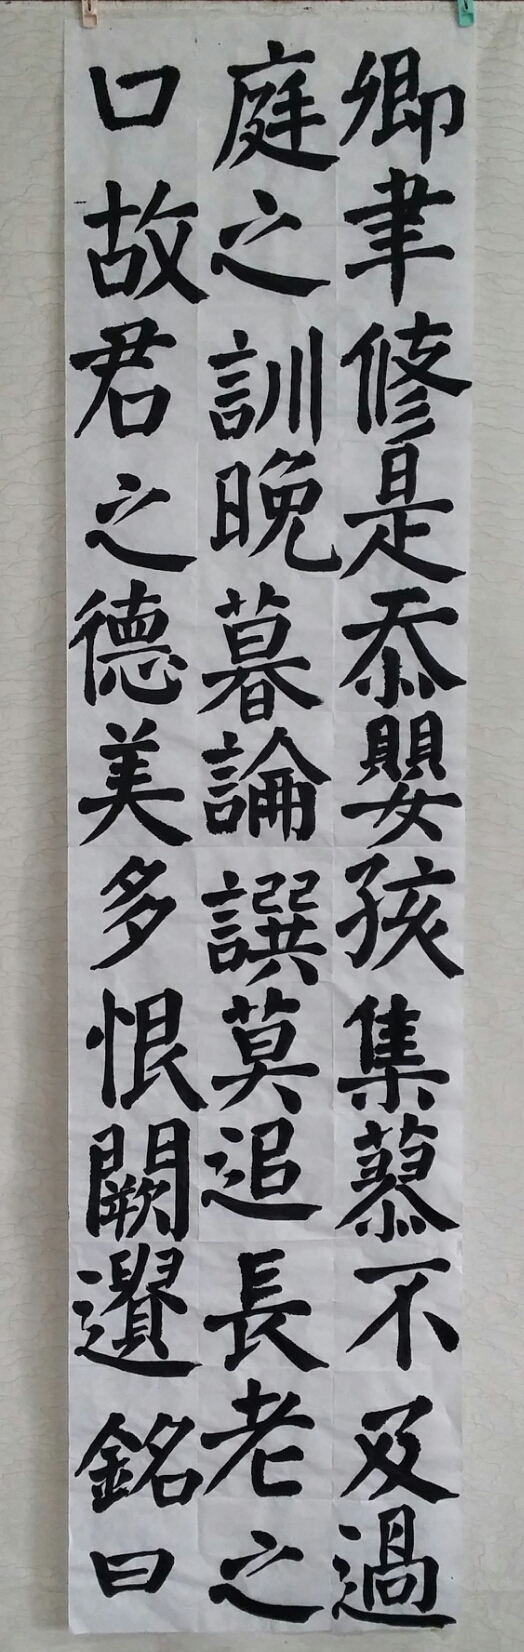 卿聿修是忝嬰孩集慕不及過
庭之訓晚暮論譔莫追長老之
口故君之德美多恨闕遺銘曰